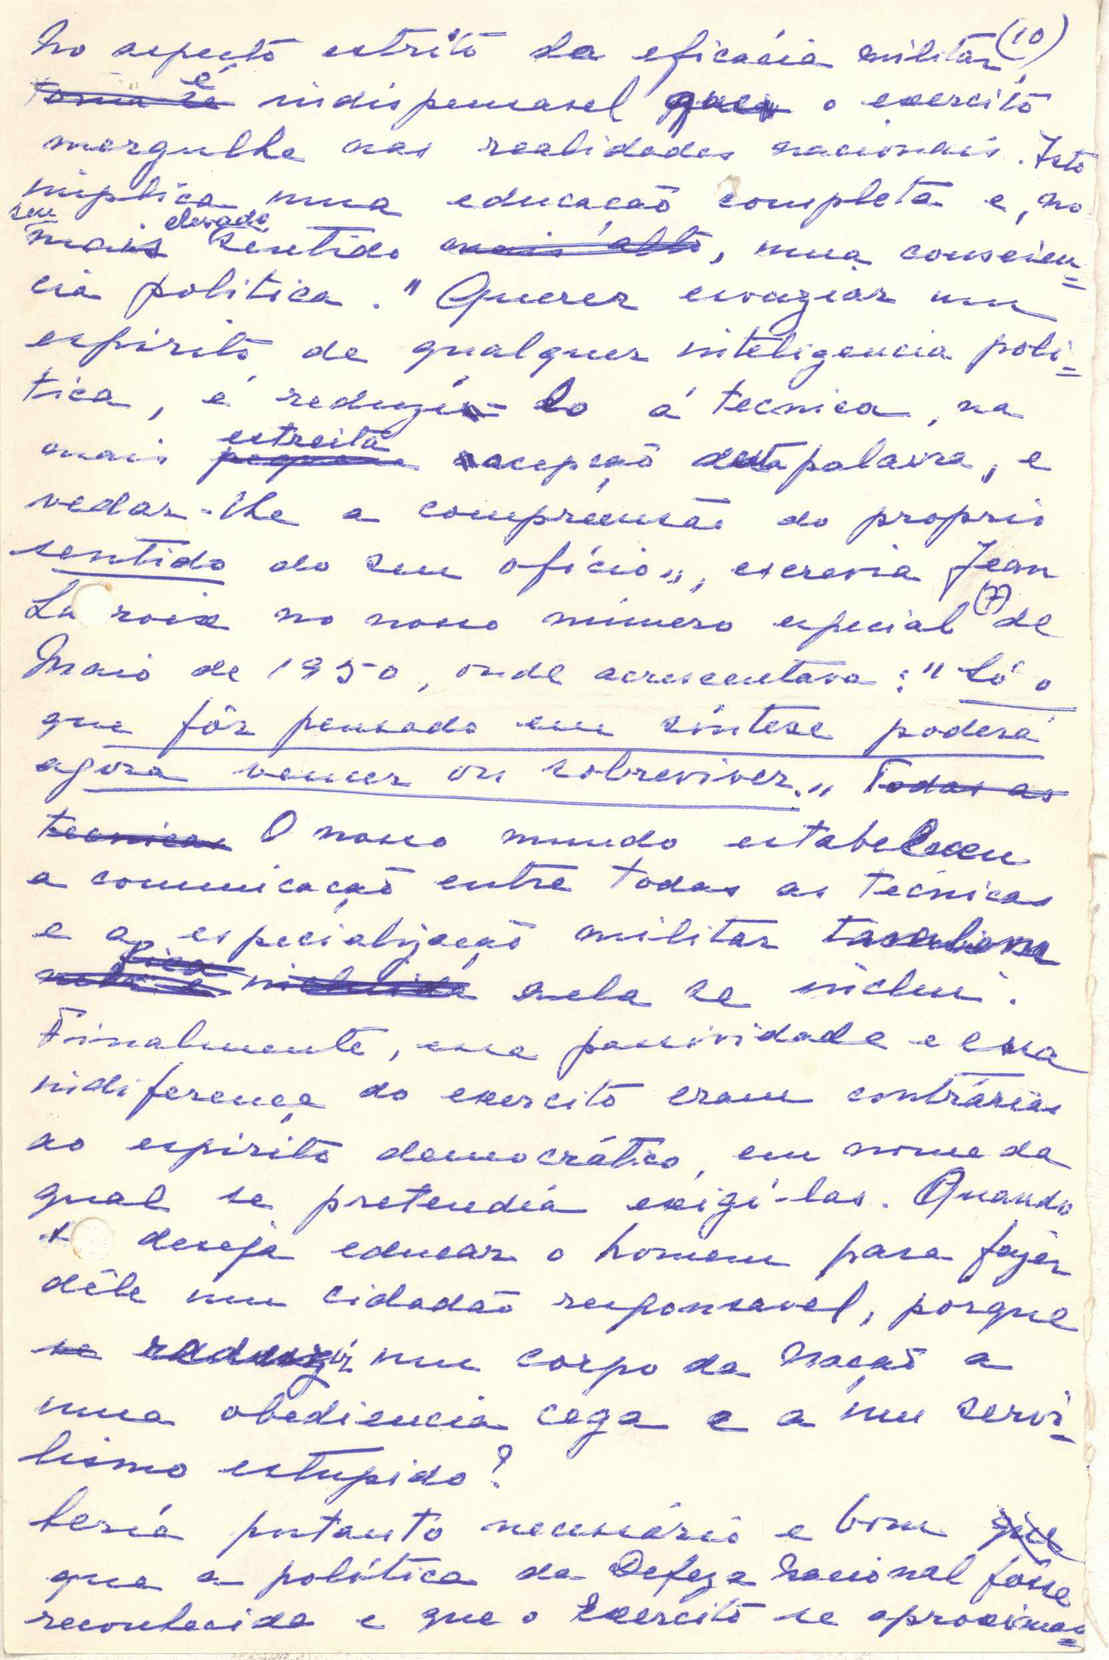 (10)
No aspecto estrito da eficácia militar,
torna-se é indispensavel que o exercito
mergulhe nas realidades nacionais. Isto
implica uma educação completa e, no
seu mais elevado sentido mais alto, uma conscien-
cia politica. "Querer esvaziar um
espirito de qualquer inteligencia poli-
tica, é reduzi-lo á tecnica, na
mais pequena estreita acepção desta palavra, e
vedar-lhe a compreensão do proprio
sentido do seu ofício", escrevia Jean
La roix no nosso número especial (7) de
Maio de 1950, onde acrescentava: "Só o
que fôr pensado em síntese poderá
agora vencer ou sobreviver." Todas as
tecnicas O nosso mundo estabeleceu
a comunicação entre todas as tecnicas
e a especialização militar tambem
nela é fica incluida nela se inclui.
Finalmente, essa passividade e essa
indiferença do exercito eram contrárias
ao espirito democrático, em nome da
qual se pretendia exigi-las. Quando
se deseja educar o homem para fazer
dêle um cidadão responsavel, porque
se reduzir um corpo da Nação a
uma obediencia cega e a um servi-
lismo estupido?
Seria portanto necessário e bom que
que a política da Defeza Nacional fôsse
reconhecida e que o Exercito se aproximas-